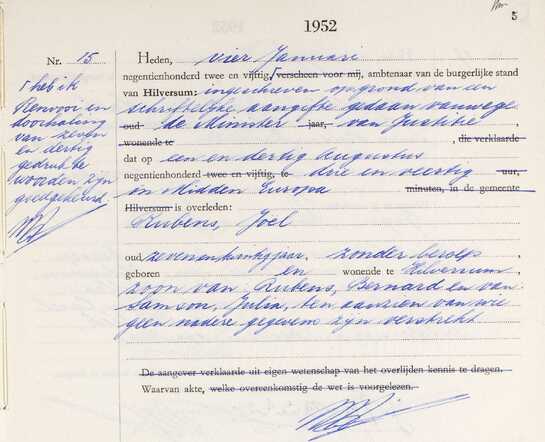 1952
5
Nr. 15
Heden, vier Januari
negentienhonderd twee en vijftig, verscheen voor mij, ambtenaar van de burgerlijke stand
van Hilversum: ingeschreven op grond van een
schriftelijke aangifte gedaan vanwege
oud de Minister jaar, van Justitie,
wonende te , die verklaarde
dat op een en dertig Augustus
negentienhonderd twee en vijftig, te drie en veertig uur,
in Midden Europa minuten, in de gemeente
Hilversum is overleden:
Rubens, Joel
oud zevenentwintig jaar, zonder beroep,
geboren en wonende te Hilversum
zoon van Rubens, Bernard en van
Samson, Julia, ten aanzien van wie
geen nadere gegevens zijn verstrekt
De aangever verklaarde uit eigen wetenschap van het overlijden kennis te dragen.
Waarvan akte, welke overeenkomstig de wet is voorgelezen.
heb ik
Renvooi en
doorhaling
van zeven
en dertig
gedrukte
woorden zijn
goedgekeurd.